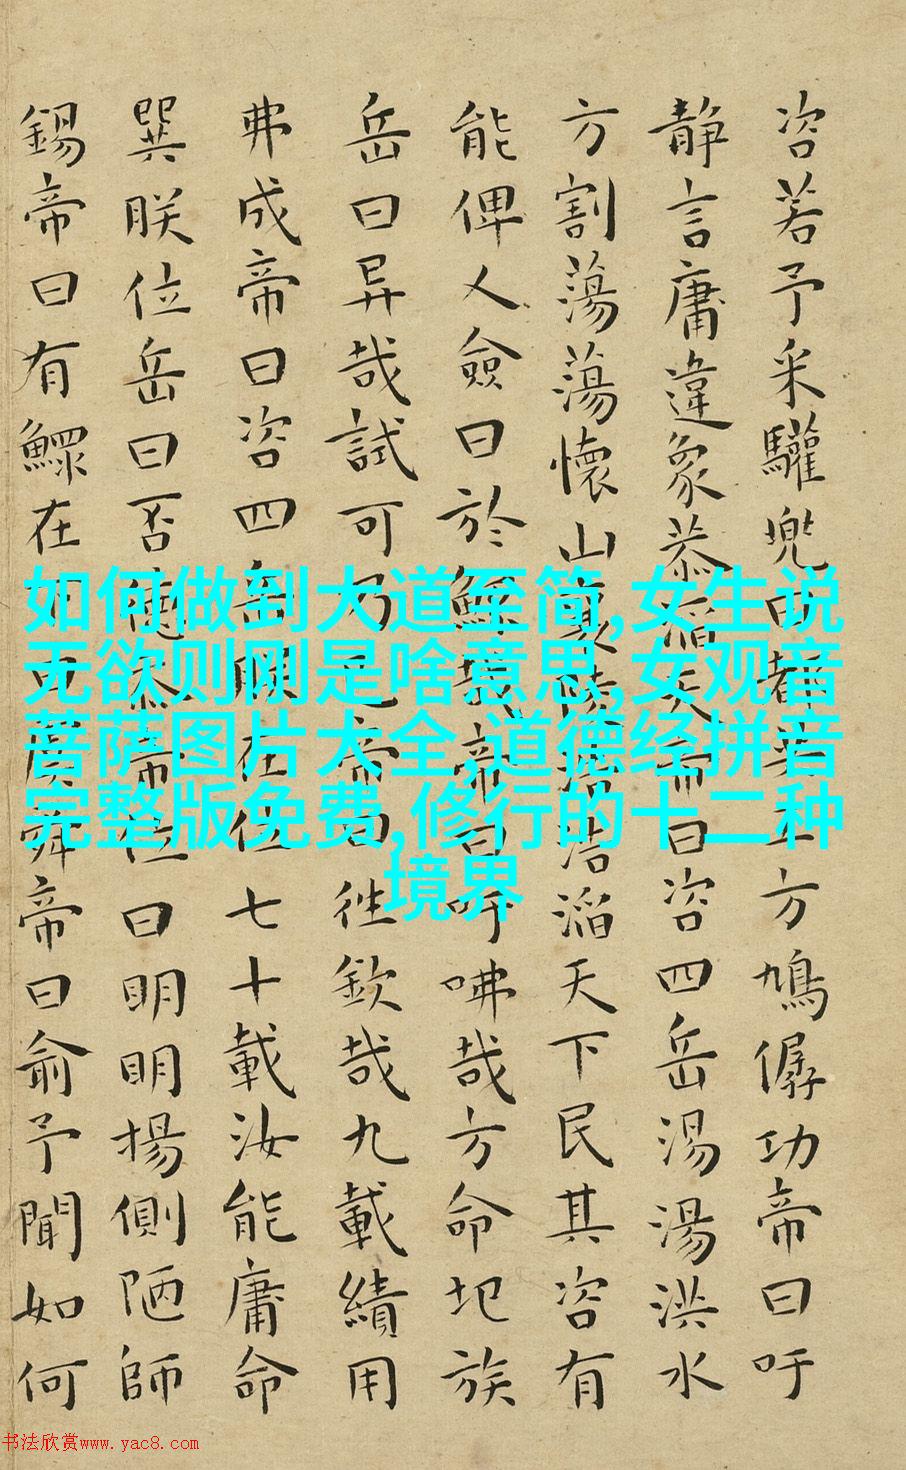 咨若予采驩兜曰都共工方鳩僝功帝曰吁
静言庸違象恭滔天帝曰咨四岳湯湯洪水
方割蕩蕩懷山襄陵浩浩滔天下民其咨有
能俾乂僉曰於鯀哉帝曰吁咈哉方命圮族
岳曰异哉試可乃已帝曰往欽哉九載績用
弗成帝曰咨四岳朕在位七十載汝能庸命
巽朕位岳曰否德忝帝位曰明明揚側陋師
錫帝曰有鰥在下曰虞舜帝曰俞予聞如何
如何做到大道至简,女生说
无欲则刚是啥意思,女观音
菩萨图片大全,道德经拼音
完整版免费,修行的十二种
境界
书法欣赏www.yac8.com